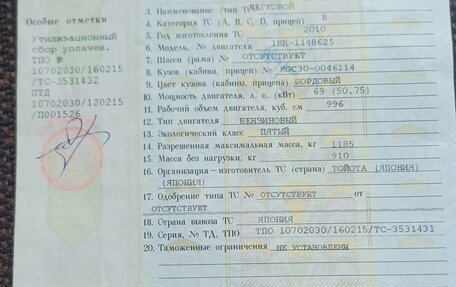 Особые отметки
Утилизационный
сбор уплачен.
ТПО №
10702030/160215
/ТС-3531432
ПТД
10702030/120215
/П001526
3. Наименование (тип ТС) ЛЕГКОВОЙ
4. Категория ТС (A, B, C, D, прицеп) B
5. Год изготовления ТС 2010
6. Модель, № двигателя 1KR-1148625
7. Шасси (рама) № ОТСУТСТВУЕТ
8. Кузов (кабина, прицеп) № KGC30-0046114
9. Цвет кузова (кабины, прицепа) БОРДОВЫЙ
10. Мощность двигателя, л. с. (кВт) 69 (50.75)
11. Рабочий объем двигателя, куб. см 996
12. Тип двигателя БЕНЗИНОВЫЙ
13. Экологический класс ПЯТЫЙ
14. Разрешенная максимальная масса, кг 1185
15. Масса без нагрузки, кг 910
16. Организация—изготовитель ТС (страна) ТОЙОТА (ЯПОНИЯ)
(ЯПОНИЯ)
17. Одобрение типа ТС № ОТСУТСТВУЕТ от
ОТСУТСТВУЕТ
18. Страна вывоза ТС ЯПОНИЯ
19. Серия, № ТД, ТПО ТПО 10702030/160215/ТС-3531431
20. Таможенные ограничения НЕ УСТАНОВЛЕНЫ